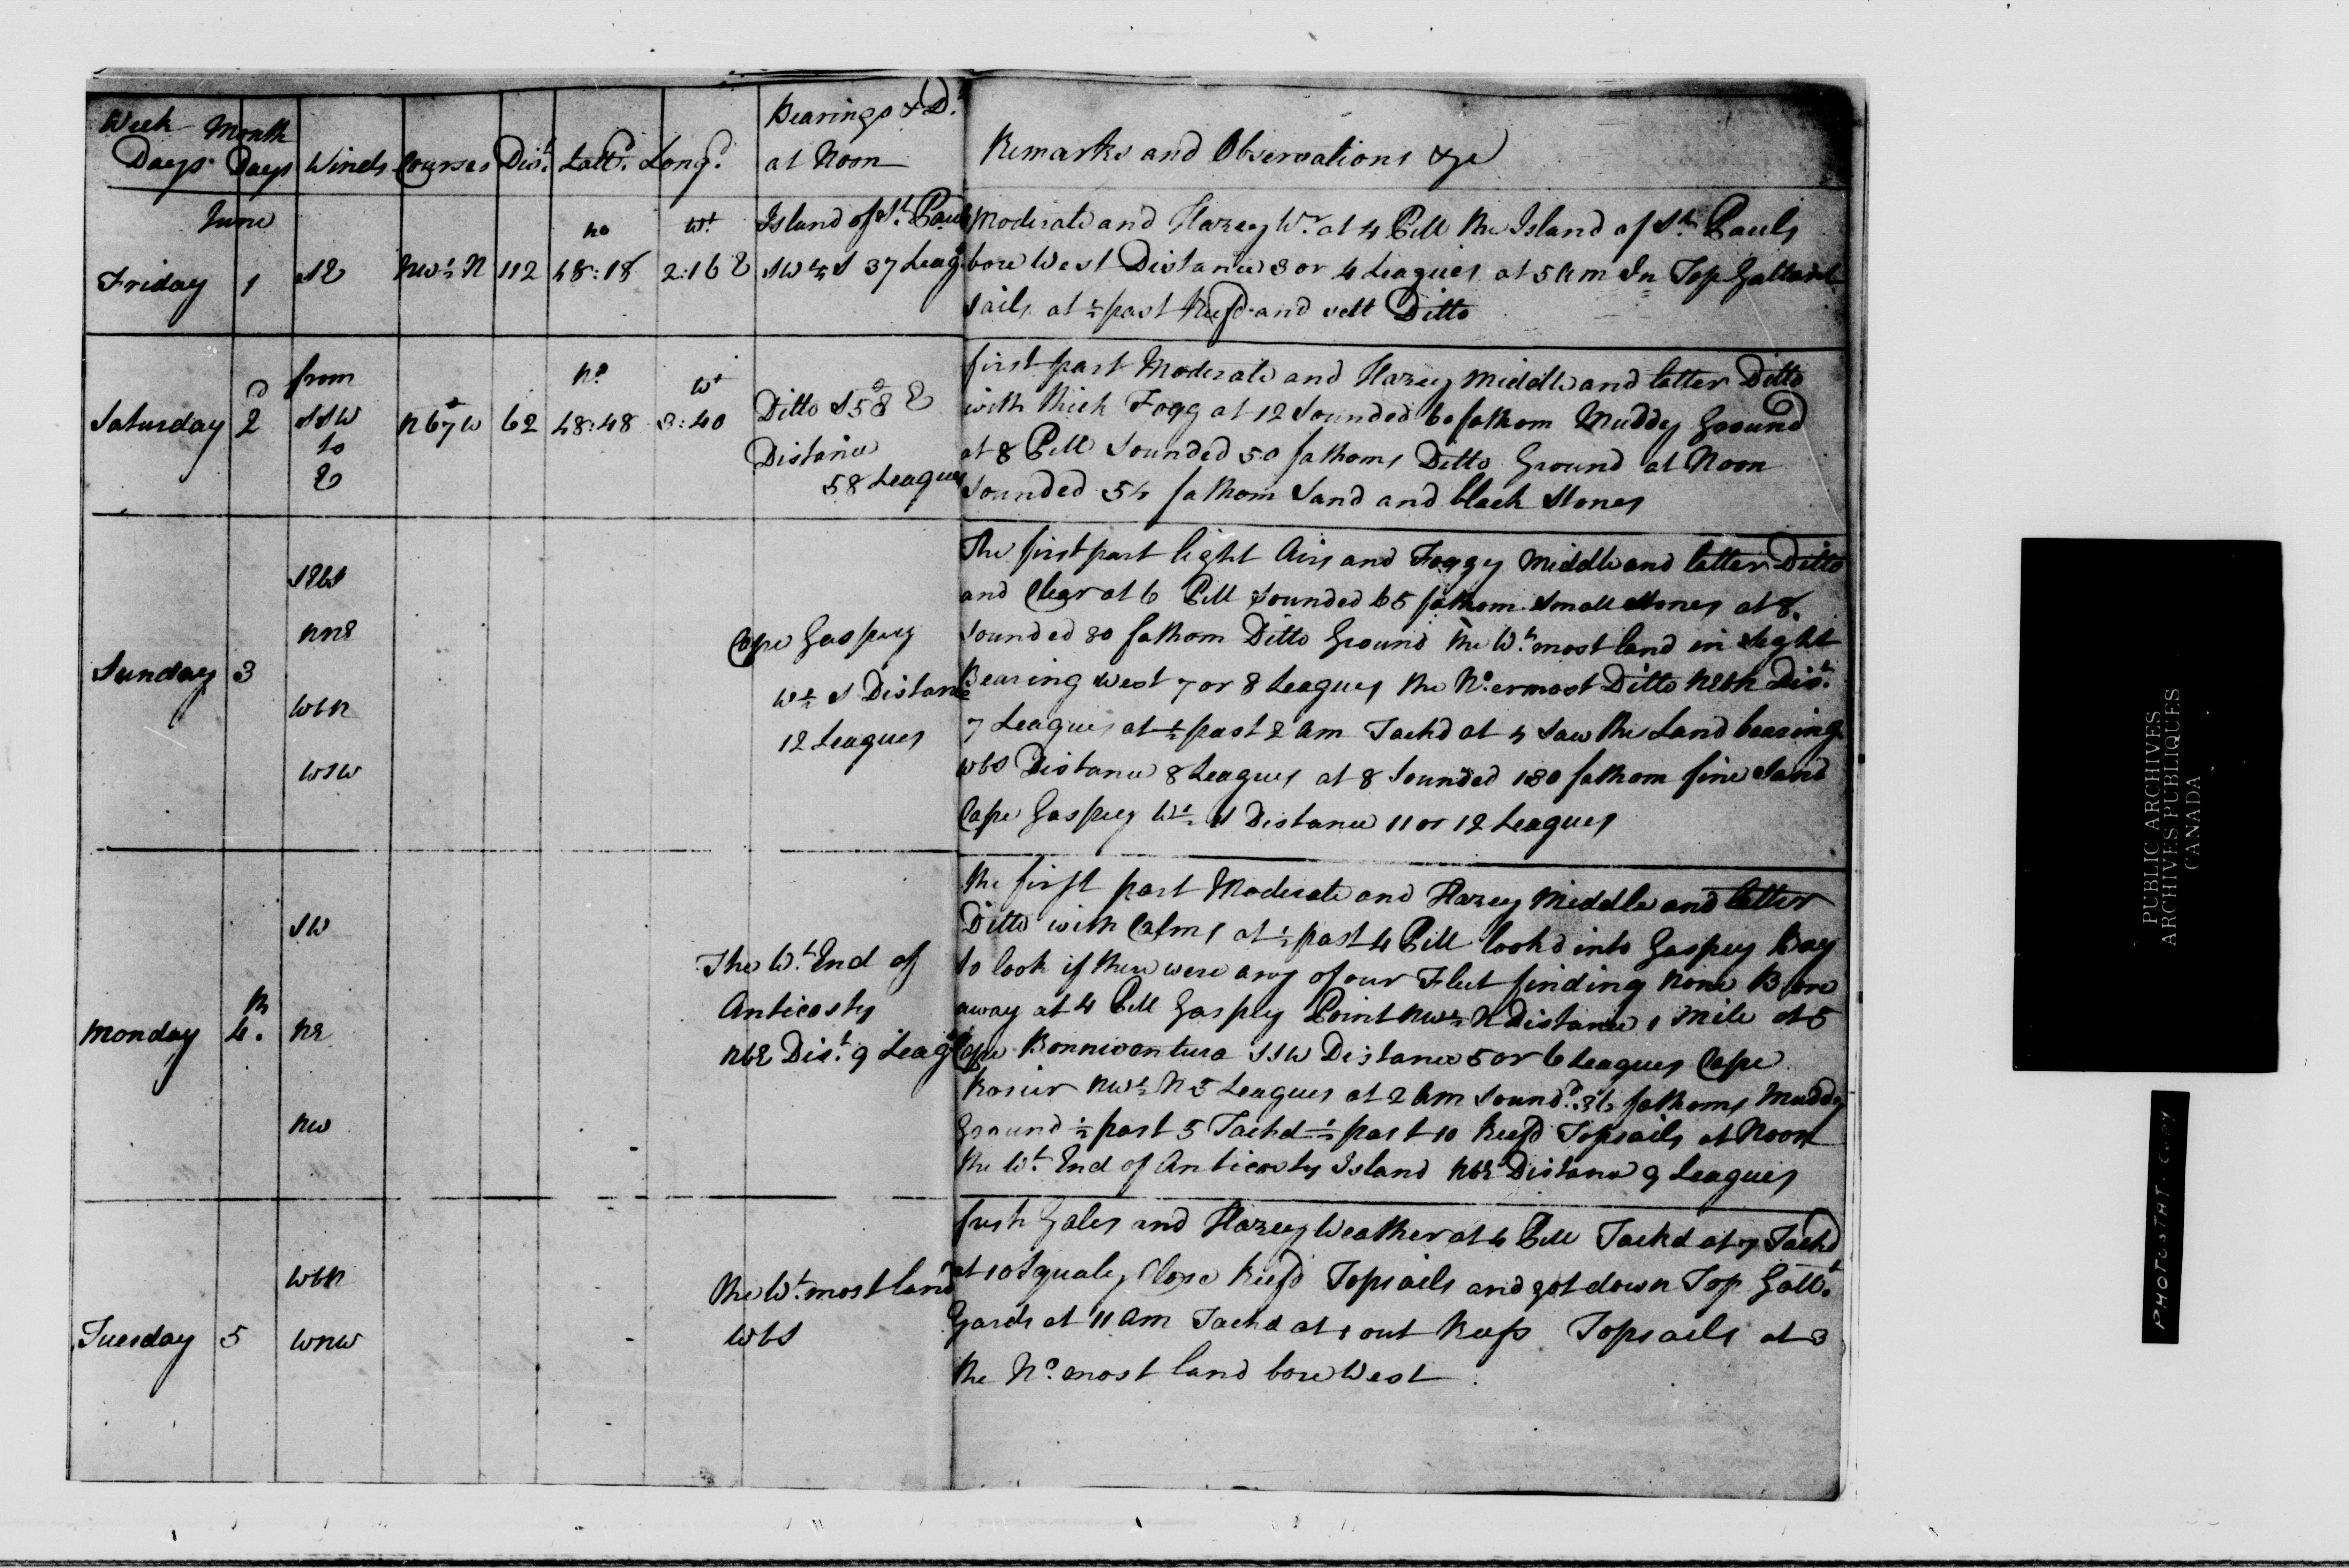 Week Days Month Days Winds Courses Dist. Latt.d Long.d Bearings & D.
at Noon
Remarks and Observations &c
June
Friday 1 SE NW½N 112 No 48:18 Wt 2:16 E Island of St. Pauls
SW½S 37 Leags
Moderate and Hazey Wr. at 4 PM the Island of St. Pauls
bore West Distance 3 or 4 Leagues at 5 AM In Top Gallant
Sails at ½ past Reefd and sett Ditto
Saturday 2d from
SSW
to
E
N67W 62 No 48:48 Wt 3:40 Ditto S58E
Distance
58 Leagues
first part Moderate and Hazey Middle and latter Ditto
with thick Fogg at 12 Sounded 60 fathom Muddy Ground
at 8 PM Sounded 50 fathoms Ditto Ground at Noon
Sounded 54 fathom Sand and black Stones
Sunday 3
SEbS
NNE
WbN
WSW
Cape Gaspey
W½S Distance
12 Leagues
The first part light Airs and Foggy Middle and latter Ditto
and Clear at 6 PM Sounded 65 fathom Small Stones at 8
Sounded 80 fathom Ditto Ground the Wt.most land in Sight
Bearing West 7 or 8 Leagues the No.ermost Ditto Dist.
7 Leagues at ½ past 2 am Tackd at 4 Saw the Land bearing
WbS Distance 8 Leagues at 8 Sounded 130 fathom fine Sand
Cape Gaspey W½S Distance 11 or 12 Leagues
Monday 4th.
SW
NE
NW
The Wt. End of
Anticosty
NbE Dist. 9 Leags
the first part Moderate and Hazey Middle and latter
Ditto with Calms at ½ past 4 PM lookd into Gaspey Bay
to look if there were any of our Fleet finding None Bore
away at 4 PM Gaspey Point NW½N Distance 1 Mile at 5
Cape Bonniventura SSW Distance 5 or 6 Leagues Cape
Rosier NW½N 5 Leagues at 2 Am Sound.d 36 fathoms Muddy
Ground ½ past 5 Tackd ½ past 10 Reefd Topsails at Noon
the Wt. End of Anticosty Island NbE Distance 9 Leagues
Tuesday 5
WbN
WNW
the Wt.most land
WbS
fresh Gales and Hazey Weather at 4 PM Tackd at 7 Tackd
at 10 Squaley Close Reefd Topsails and got down Top Gallt.
Yards at 11 AM Tackd at 1 out Reefs Topsails at 3
the No.most land bore West
PUBLIC ARCHIVES
ARCHIVES PUBLIQUES
CANADA
PHOTOSTAT COPY